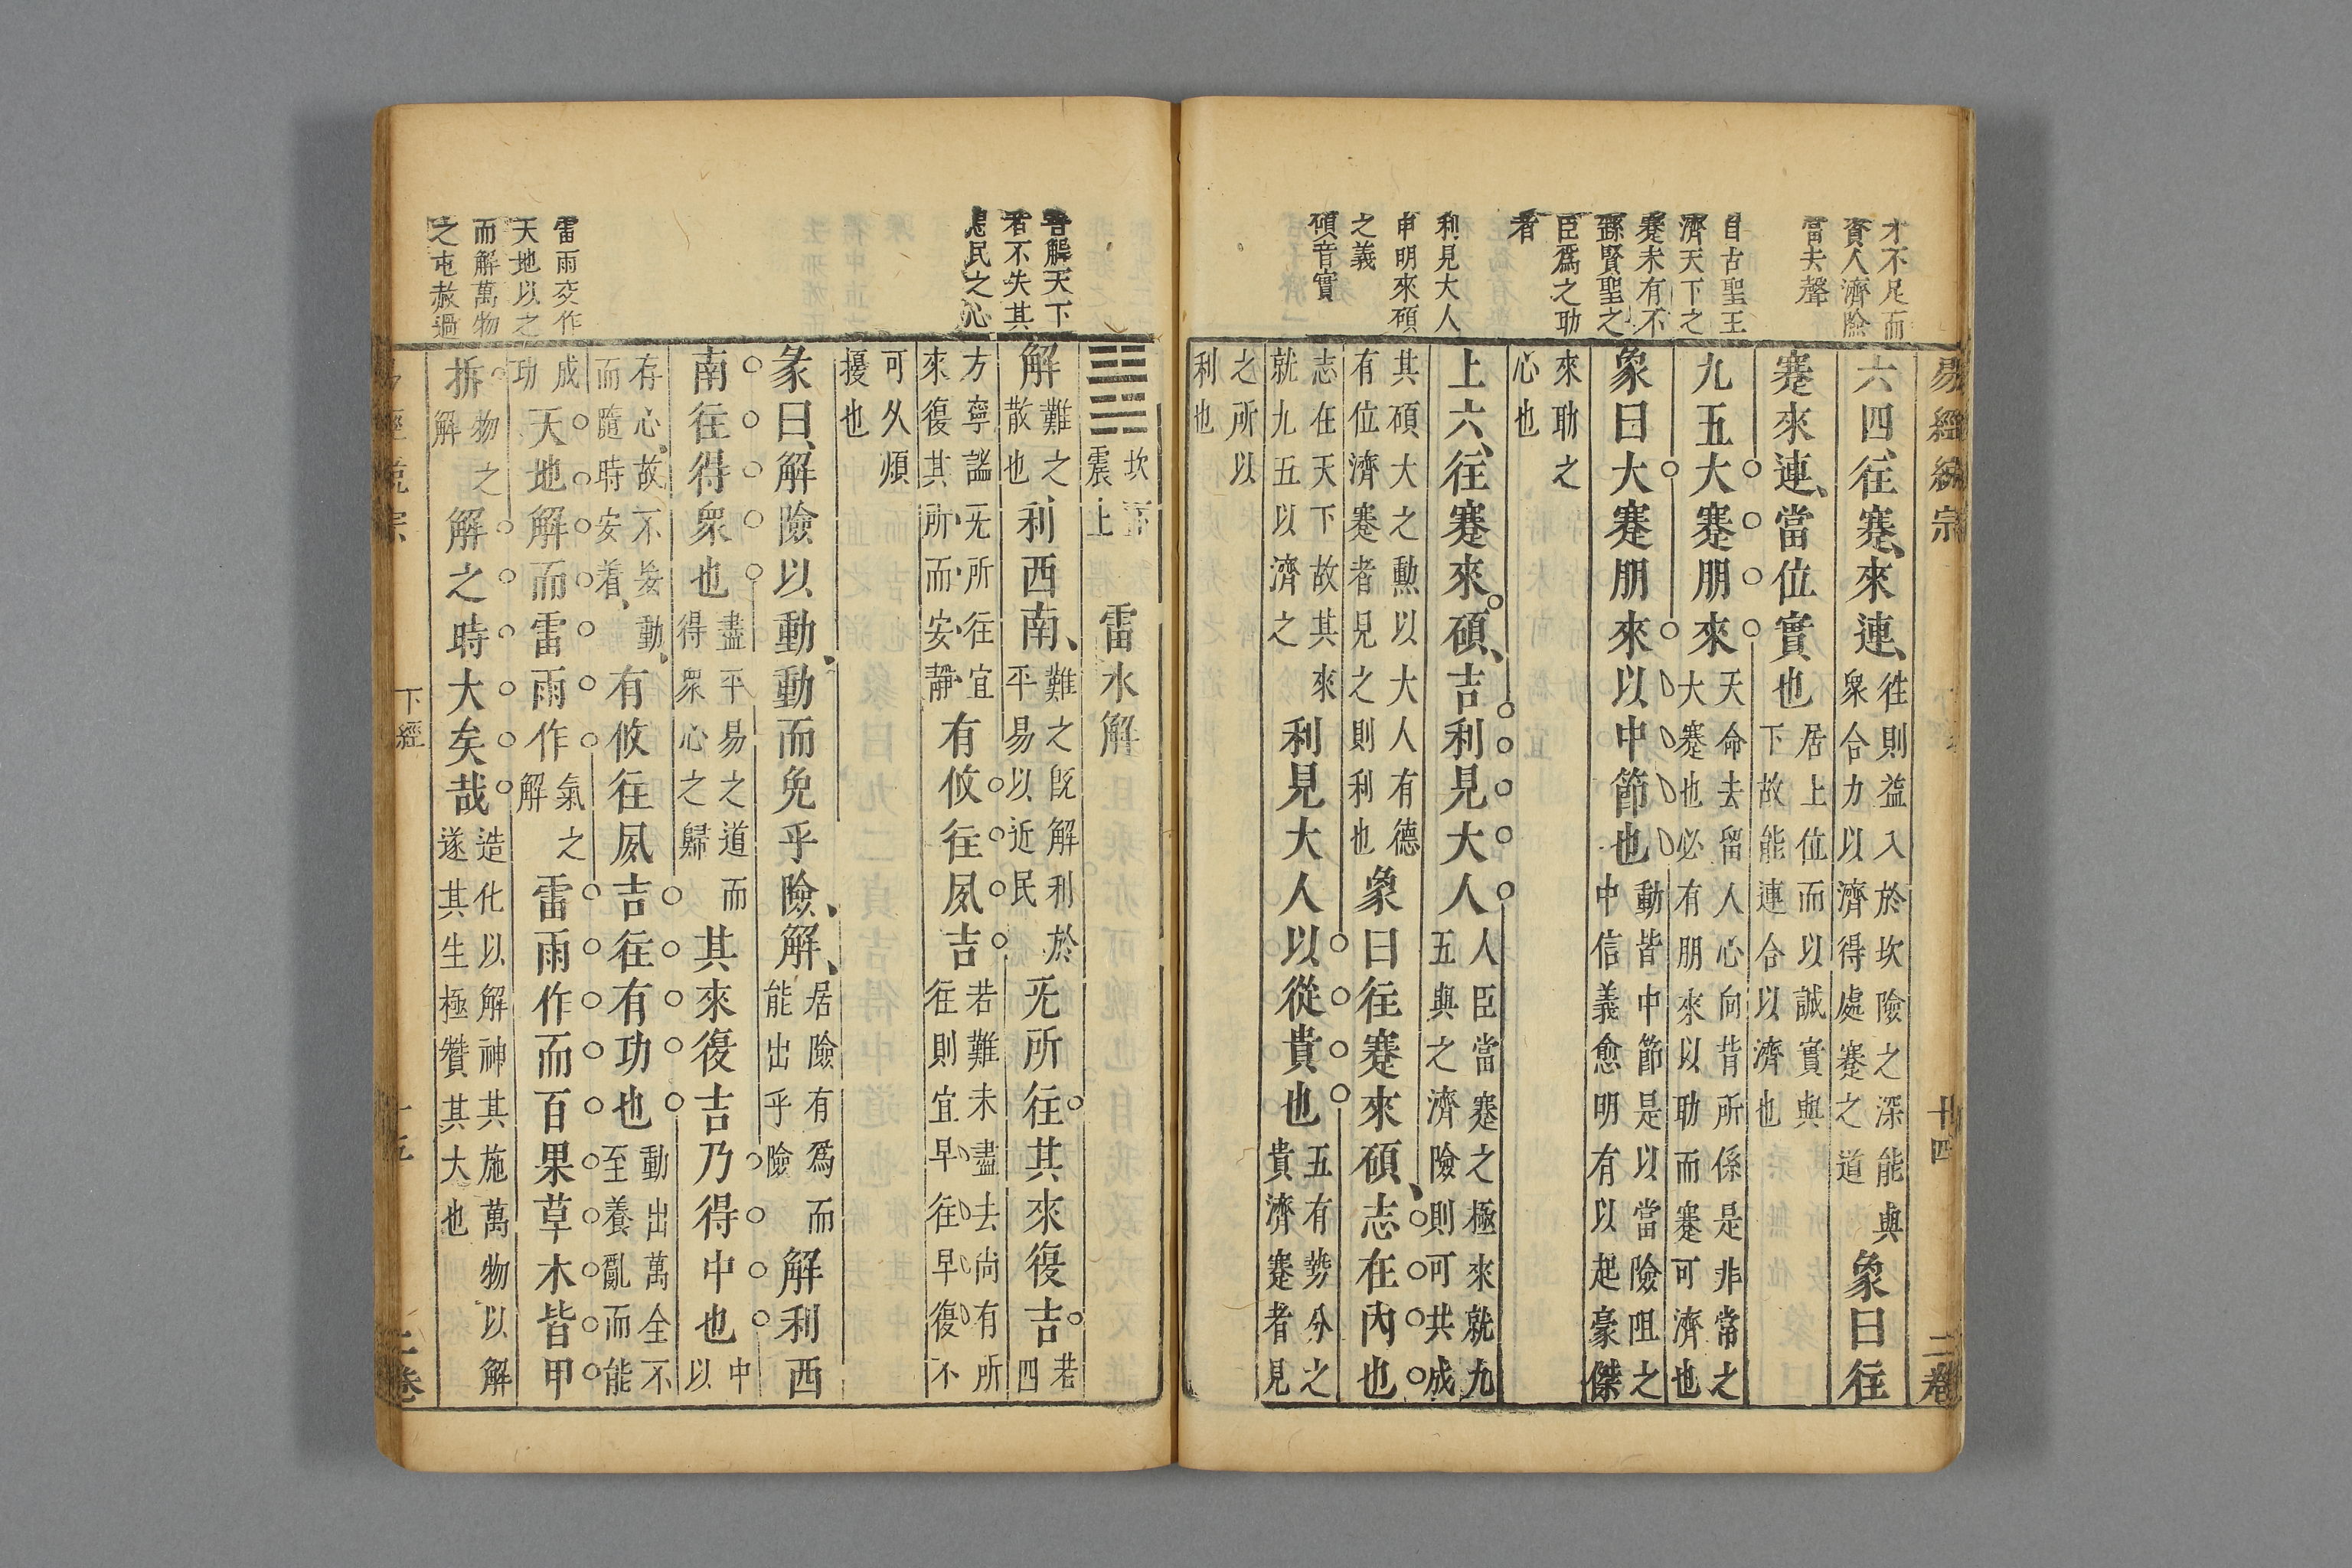 才不足而
資人濟險
當去聲
自古聖王
濟天下之
蹇未有不
繇賢聖之
臣爲之助
者
利見大人
申明來碩
之義
碩音實
易經統宗 十四 二卷
六四、往蹇、來連、往則益入於坎險之深能與衆合力以濟得處蹇之道象曰往
蹇來連、當位實也居上位而以誠實與下故能連合以濟也
九五大蹇朋來天命去留人心向背所係是非常之大蹇也必有朋來以助而蹇可濟也
象曰大蹇朋來以中節也動皆中節是以當險阻之中信義愈明有以起豪傑
來助之心也
上六、往蹇來碩、吉利見大人人臣當蹇之極來就九五與之濟險則可共成
其碩大之勳以大人有德有位濟蹇者見之則利也象曰往蹇來碩、志在內也
志在天下故其來就九五以濟之利見大人以從貴也五有勢分之貴濟蹇者見
之所以利也
善解天下
者不失其
民之心
雷雨交作
天地以之
而解萬物
之屯赦過
坎下震上 雷水解
解難之散也利西南、難之旣解利於平易以近民无所往其來復吉若四
方寧謐无所往宜來復其所而安靜有攸往夙吉若難未盡去尚有所往則宜早往早復不
可久煩擾也
彖曰、解險以動、動而免乎險、解、居險有爲而能出乎險解利西
南往得衆也盡平易之道而得衆心之歸其來復吉乃得中也中以
存心故不妄動、而隨時安着、有攸往夙吉往有功也動出萬全不至養亂而能
成功天地解而雷雨作氣之解雷雨作而百果草木皆甲
拆物之解解之時大矣哉造化以解神其施萬物以解遂其生極贊其大也
下經